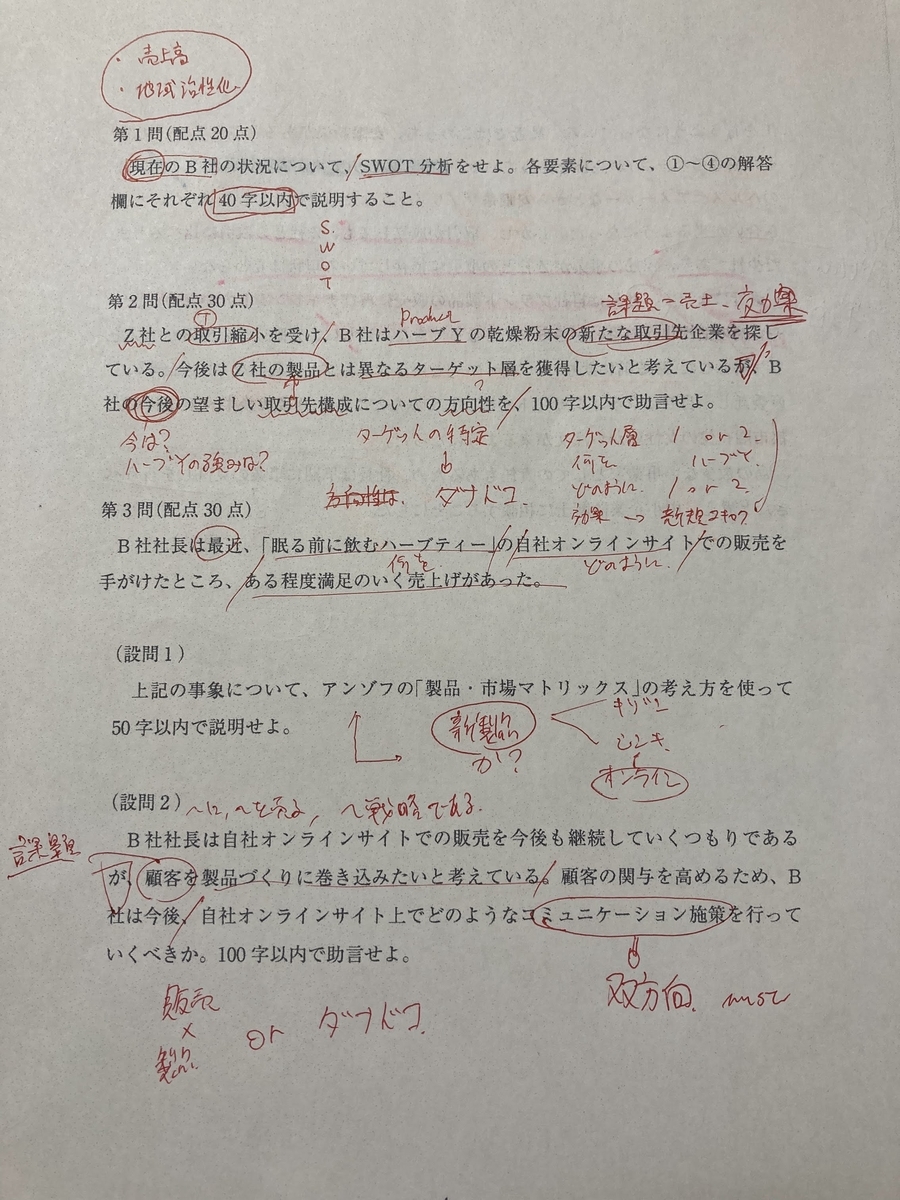 ・売上高
・地域活性化
第1問(配点20点)
現在のB社の状況について、SWOT分析をせよ。各要素について、①~④の解答
欄にそれぞれ40字以内で説明すること。
S.
W
O
T
第2問(配点30点)
課題→売上、効果
T
Product
Z社との取引縮小を受け、B社はハーブYの乾燥粉末の新たな取引先企業を探し
ている。今後はZ社の製品とは異なるターゲット層を獲得したいと考えているが、B
?
社の今後の望ましい取引先構成についての方向性を、100字以内で助言せよ。
今は?
ターゲットの特定
ターゲット層 1 or 2.
ハーブYの強みは?
何を ハーブY.
方向性は、 ダナドコ
どのように. 1 or 2
第3問(配点30点)
効果 →
B社社長は最近、「眠る前に飲むハーブティー」の自社オンラインサイトでの販売を
何を
どのように.
手がけたところ、ある程度満足のいく売上げがあった。
(設問1)
上記の事象について、アンゾフの「製品・市場マトリックス」の考え方を使って
50字以内で説明せよ。
新製品
か?
シンキ
オンライン
(設問2)
~は,~を売る, ~戦略である.
課題
B社社長は自社オンラインサイトでの販売を今後も継続していくつもりである
が、顧客を製品づくりに巻き込みたいと考えている。顧客の関与を高めるため、B
社は今後、自社オンラインサイト上でどのようなコミュニケーション施策を行って
いくべきか。100字以内で助言せよ。
双方向. must
販売
×
製品
or ダナドコ.